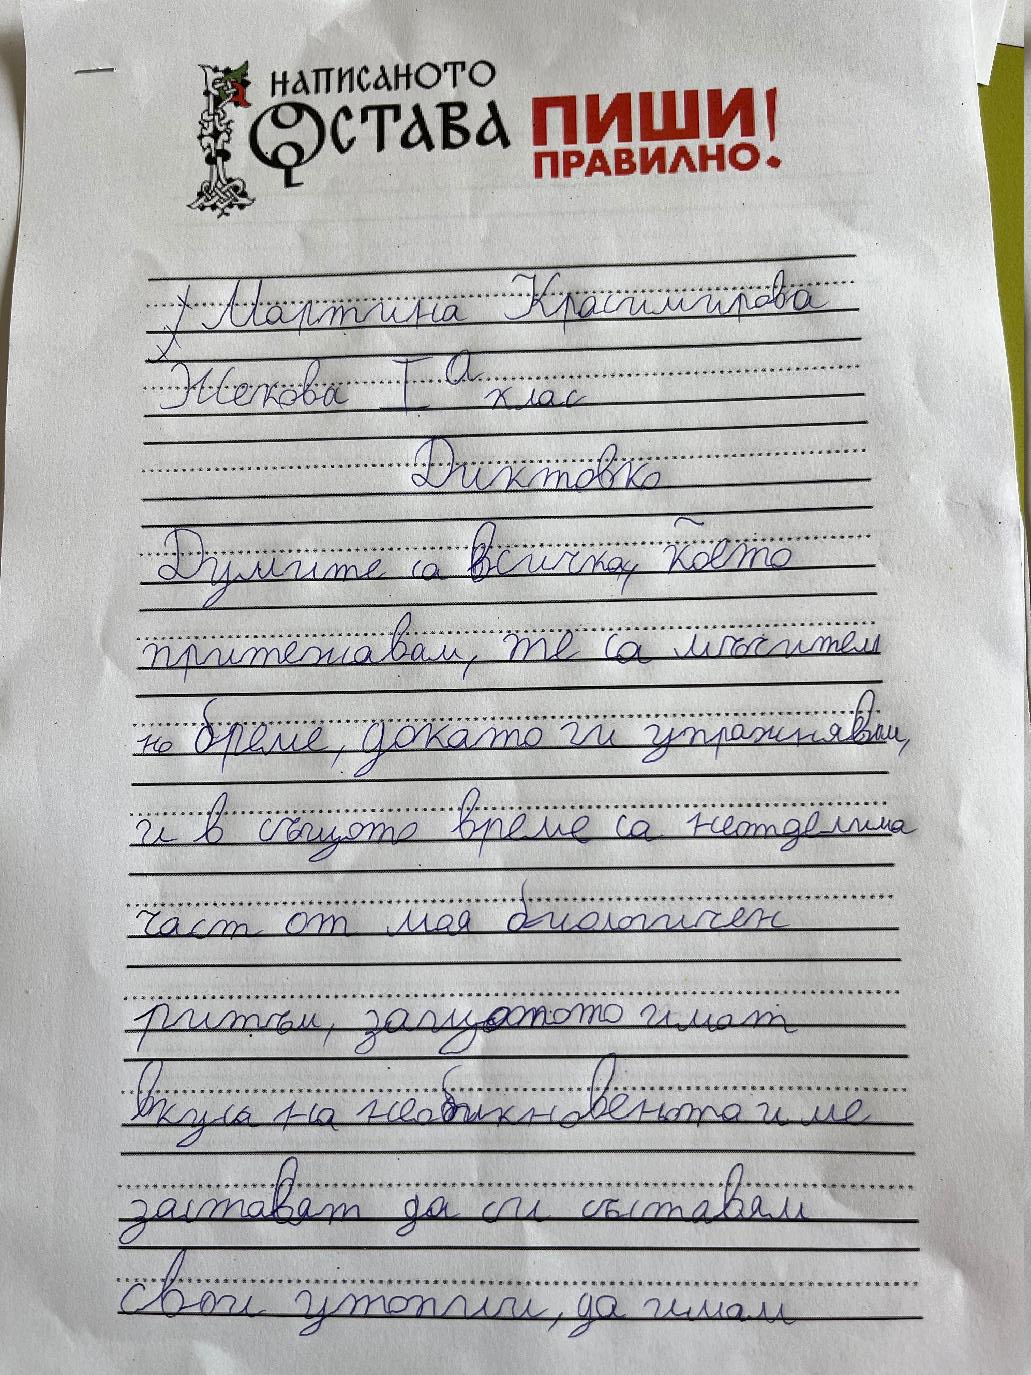 НАПИСАНОТО
ОСТАВА
ПИШИ!
ПРАВИЛНО
Мартина Красимирова
Жекова I а клас
Диктовка
Думите са всичко, което
притежавам, те са мъчител
но бреме, докато ги упражнявам,
и в същото време са неотделима
част от мая биологичен
ритъм, защотото имат
вкуса на необикновеното и ме
заставят да си съставям
свои утопии, да имам